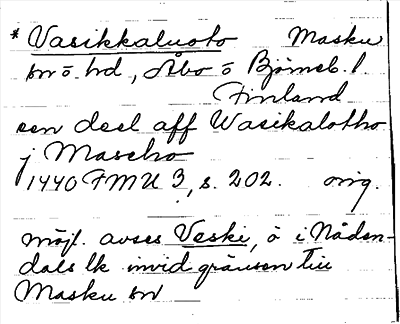 * Vasikkaluoto Masku
sn ö. hd, Åbo ö Björneb. l.
Finland
een deel aff Wasikalotho
j Mascho
1440 FMU 3, s. 202. orig.
möjl. avses Veski, ö i Nåden-
dals lk invid gränsen till
Masku sn